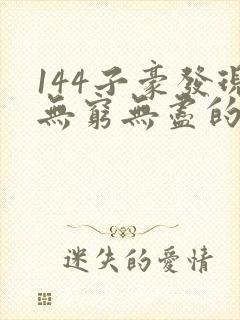 144子豪發現
無窮無盡的
迷失的愛情